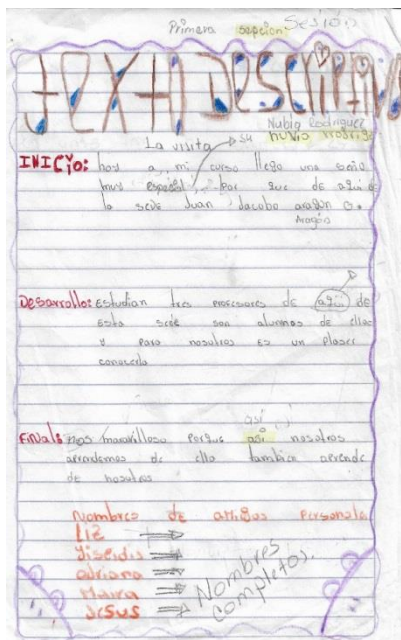 Primera sepcion: Sesión
Text Descriptivo
Nubia Rodriguez
La visita su
INICYO: hoy a mi curso llego una seño
muy especial por que de aqui
la sede Juan Jacobo aragon
Aragón
Desarrollo: Estudian tres profesores de aqui de
Esta sede son alumnos de ella
y para nosotros es un plaser
conoserla
así
Final: mas maravilloso porque asi nosotros
aprendemos de ella tambien aprende
de nosotros
Nombres de amigos Personale
Liz
Yiseidis
adriana
Maira
Jesus
Nombres
completos.